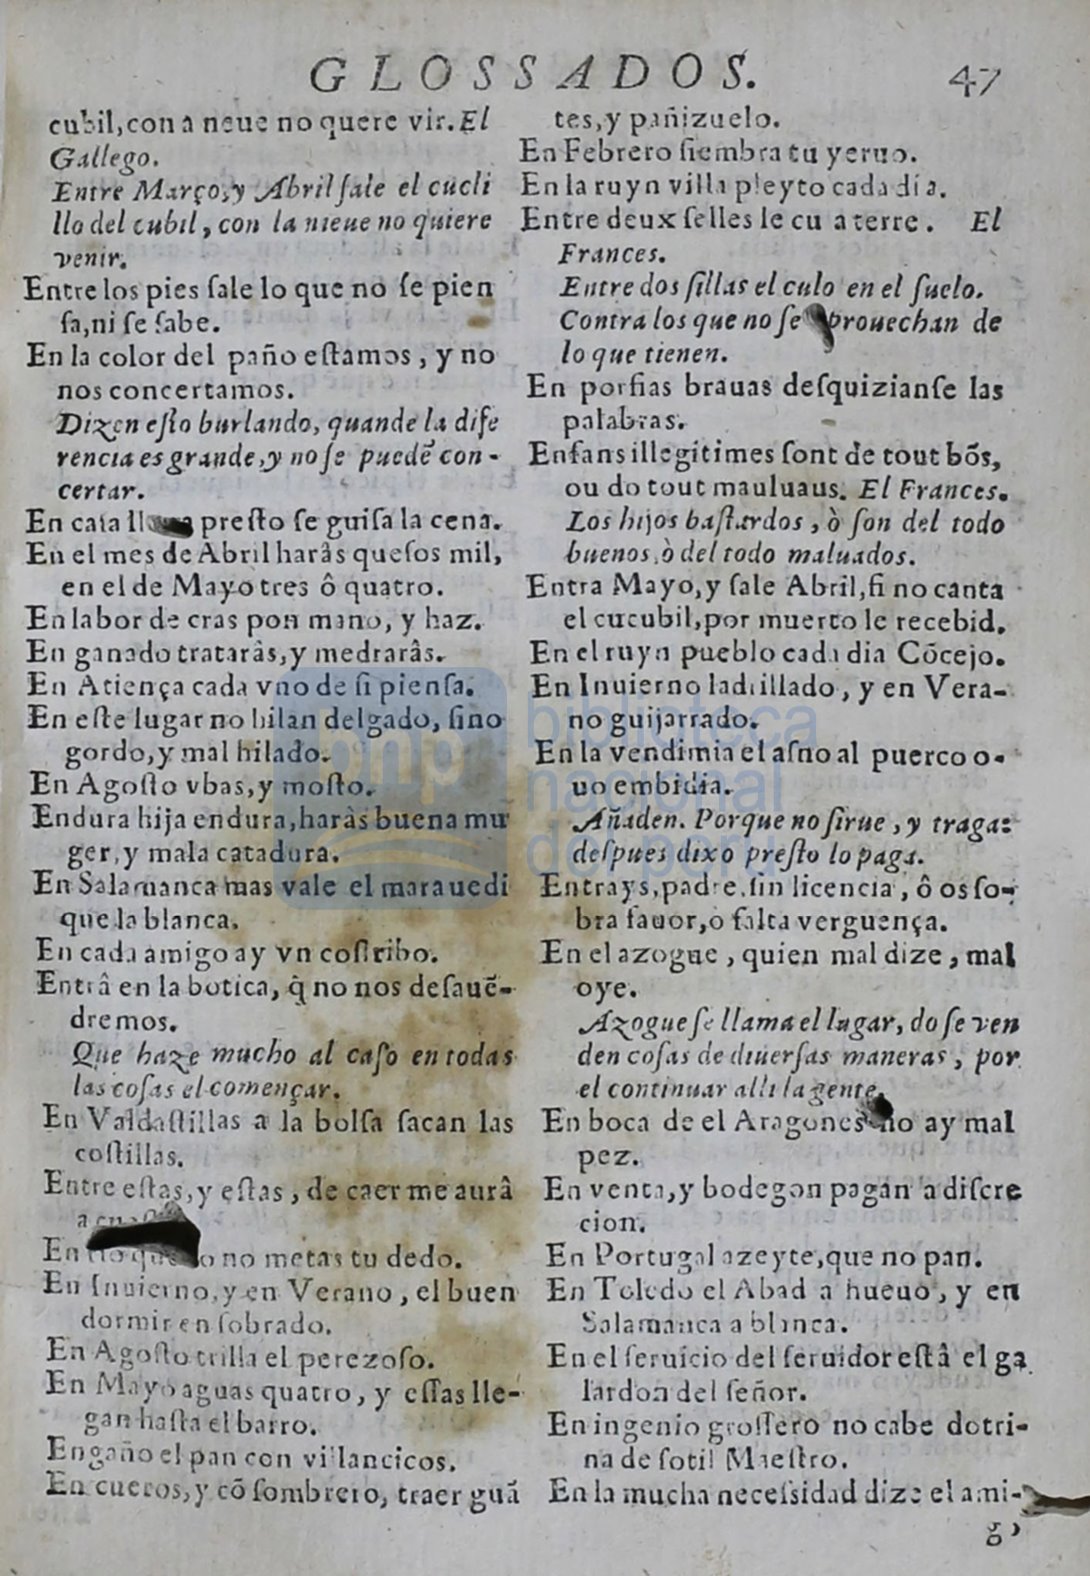 GLOSSADOS. 47
cubil, con a neue no quere vir. El
Gallego.
Entre Março, y Abril sale el cucli
llo del cubil, con la nieue no quiere
venir.
Entre los pies sale lo que no se pien
sa, ni se sabe.
En la color del paño estamos, y no
nos concertamos.
Dizen esto burlando, quando la dife
rencia es grande, y no se puedẽ con-
certar.
En casa presto se guisa la cena.
En el mes de Abril harâs quesos mil,
en el de Mayo tres ô quatro.
En labor de cras pon mano, y haz.
En ganado tratarâs, y medrarâs.
En Atiença cada vno de si piensa.
En este lugar no hilan delgado, sino
gordo, y mal hilado.
En Agosto vbas, y mosto.
Endura hija endura, haràs buena mu
ger, y mala catadura.
En Salamanca mas vale el marauedi
que la blanca.
En cada amigo ay vn costribo.
Entrâ en la botica, q̃ no nos desauẽ-
dremos.
Que haze mucho al caso en todas
las cosas el començar.
En Valdastillas a la bolsa sacan las
costillas.
Entre estas, y estas, de caer me aurâ
a
En no metas tu dedo.
En Inuierno, y en Verano, el buen
dormir en sobrado.
En Agosto trilla el perezoso.
En Mayo aguas quatro, y essas lle-
gan hasta el barro.
Engaño el pan con villancicos.
En cueros, y cõ sombrero, traer guã
tes, y pañizuelo.
En Febrero siembra tu yeruo.
En la ruyn villa pleyto cada dia.
Entre deux selles le cu a terre. El
Frances.
Entre dos sillas el culo en el suelo.
Contra los que no se aprouechan de
lo que tienen.
En porfias brauas desquizianse las
palabras.
Enfans illegitimes sont de tout bõs,
ou do tout mauluaus. El Frances.
Los hijos bastardos, ò son del todo
buenos, ò del todo maluados.
Entra Mayo, y sale Abril, si no canta
el cucubil, por muerto le recebid.
En el ruyn pueblo cada dia Cõcejo.
En Inuierno ladrillado, y en Vera-
no guijarrado.
En la vendimia el asno al puerco o-
uo embidia.
Añaden. Porque no sirue, y traga:
despues dixo presto lo paga.
Entrays, padre, sin licencia, ô os so-
bra fauor, o falta verguença.
En el azogue, quien mal dize, mal
oye.
Azogue se llama el lugar, do se ven
den cosas de diuersas maneras, por
el continuar alli la gente.
En boca de el Aragones no ay mal
pez.
En venta, y bodegon pagan a discre
cion.
En Portugal azeyte, que no pan.
En Toledo el Abad a hueuo, y en
Salamanca a blanca.
En el seruicio del seruidor estâ el ga
lardon del señor.
En ingenio grossero no cabe dotri-
na de sotil Maestro.
En la mucha necessidad dize el ami-
go
bnp
biblioteca
nacional
del perú